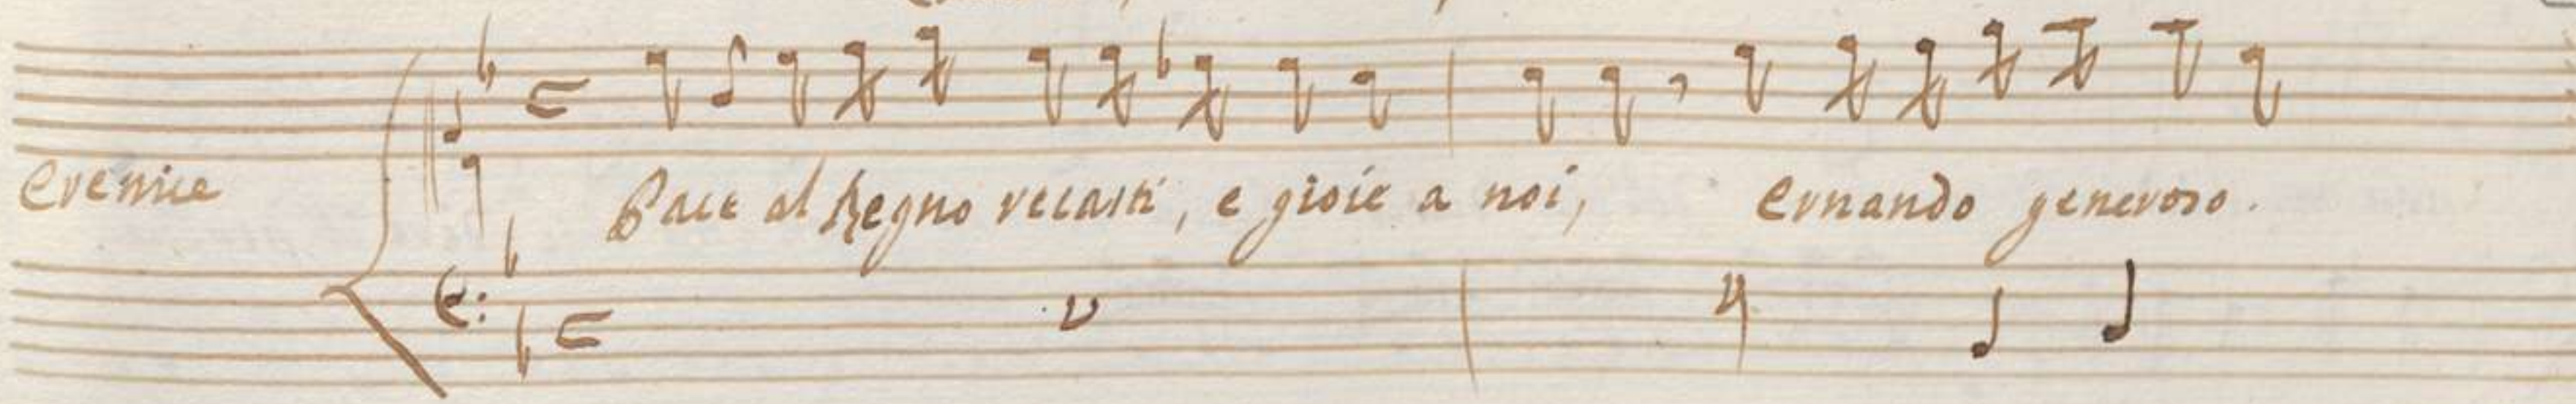 Erenice
Pace al Regno recasti, e gioie a noi, Ernando generoso.